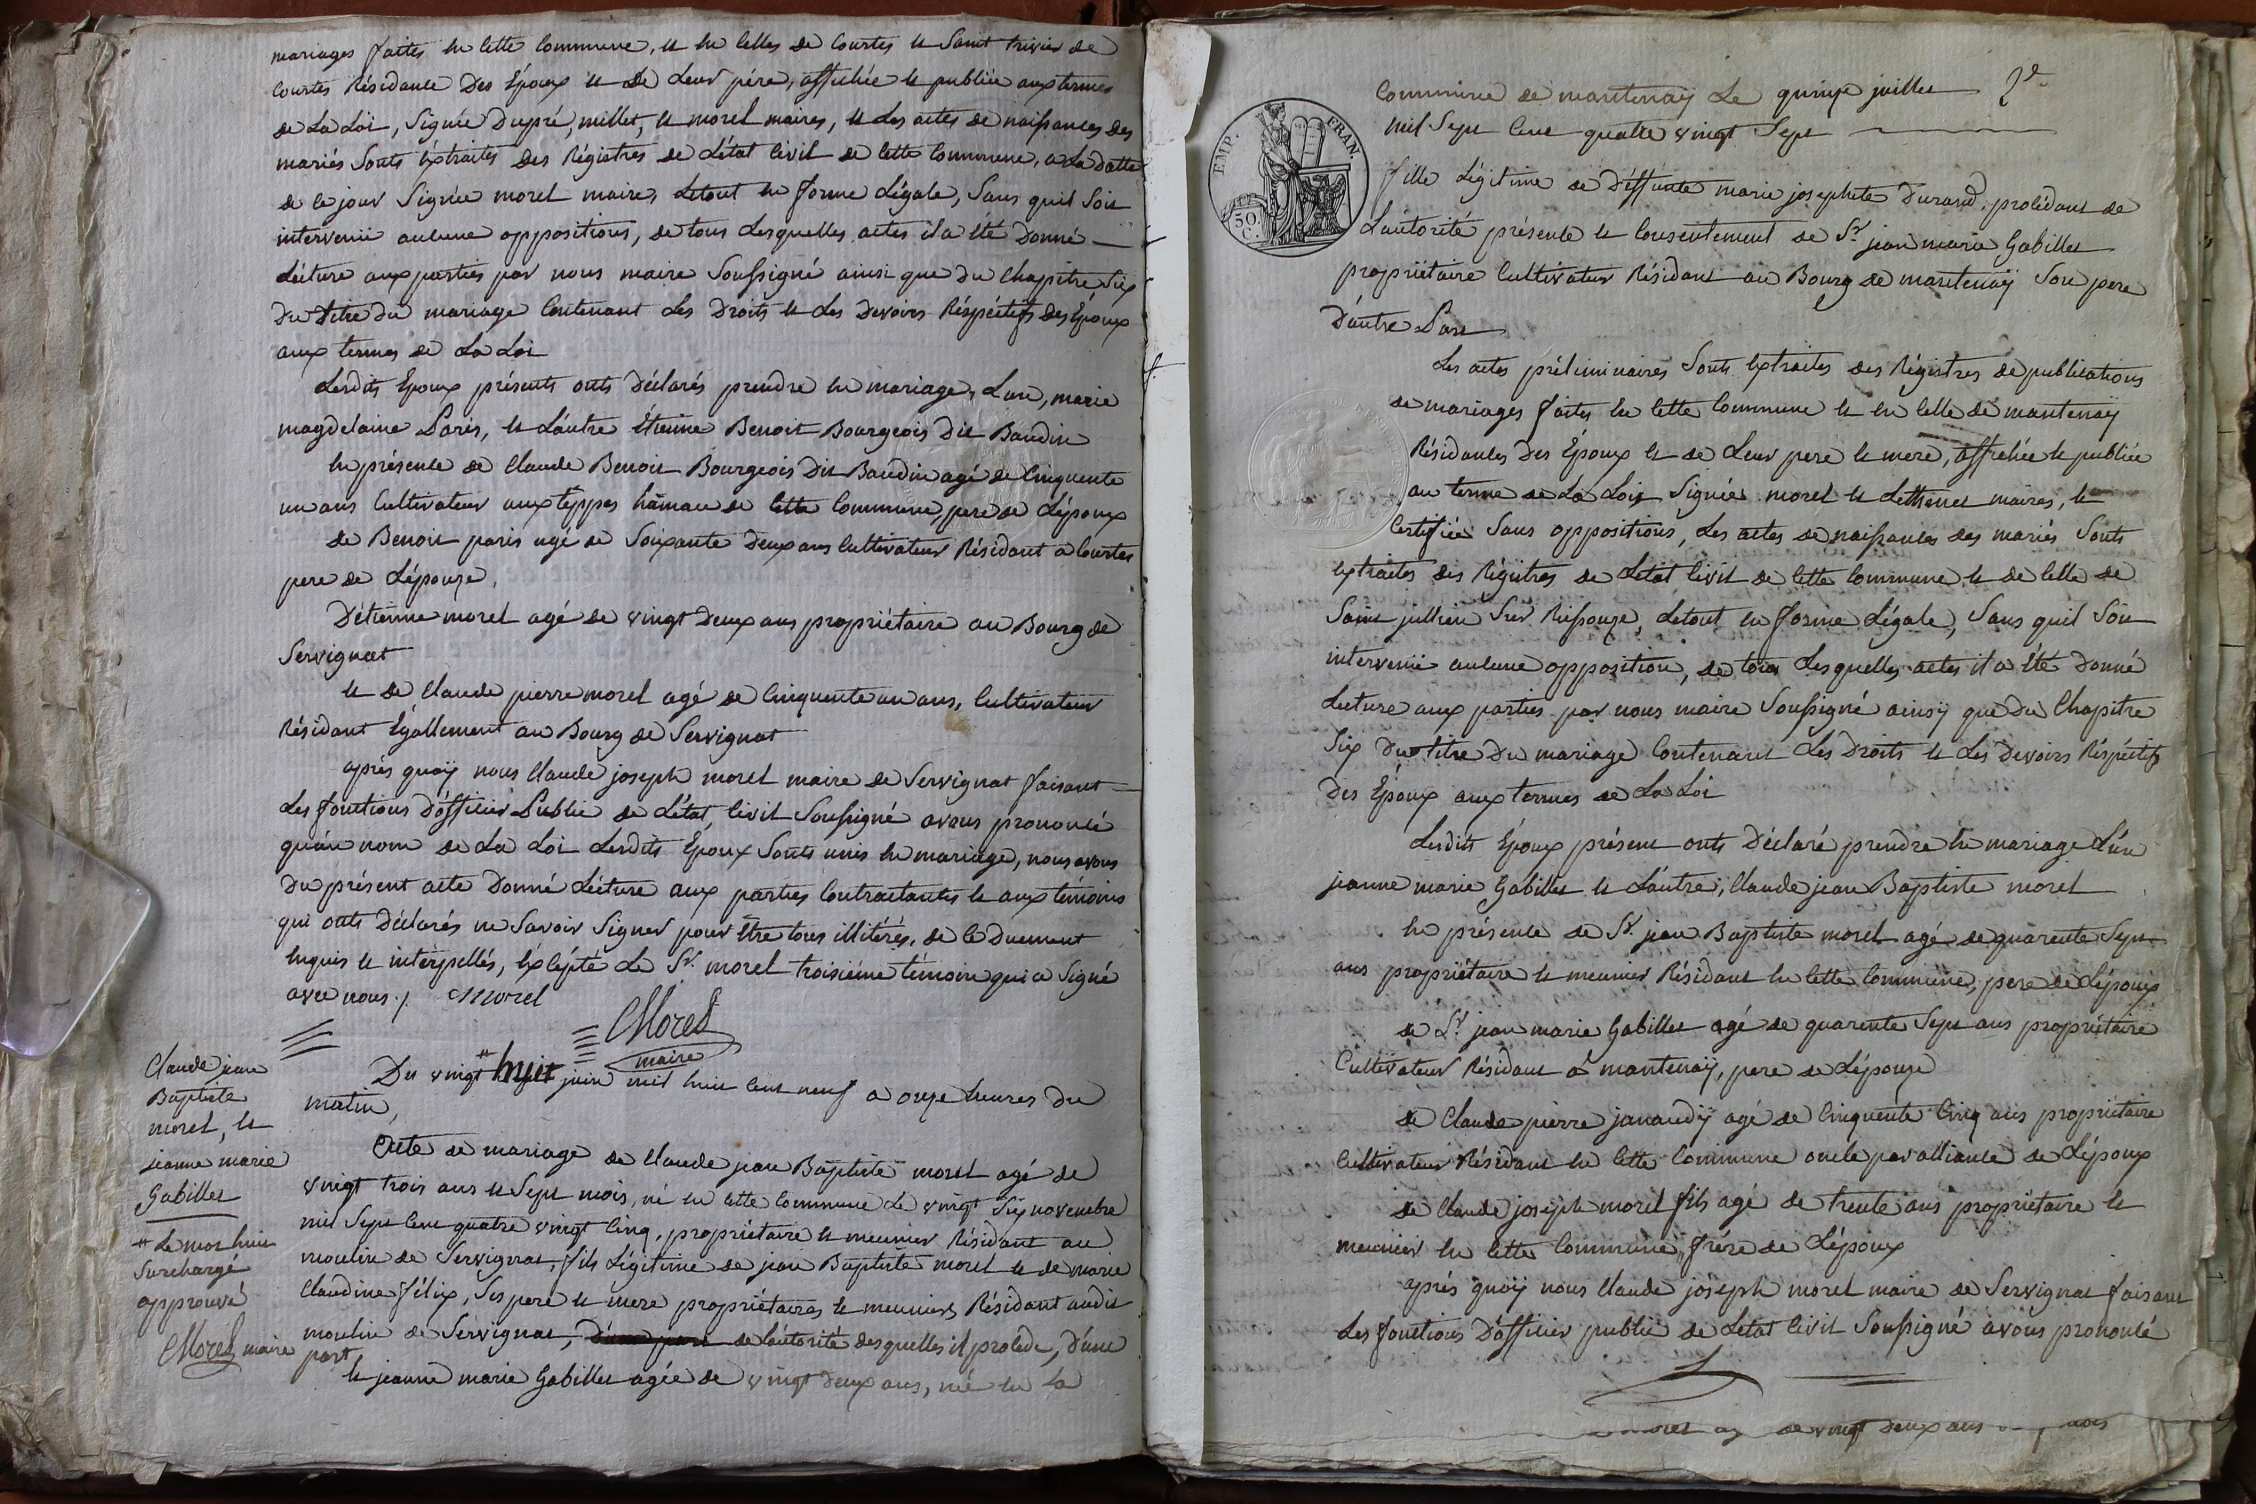 mariages faites en cette Commune, et en celles de Courtes et Saint trivier de
Courtes Résidance des Époux et de Leur père, affichée et publiée aux termes
de La Loi, Signée Dupré, millet, et morel maires, et Les actes de naissances des
mariés Sonts Extraites des Régistres de L'état Civil de cette Commune, a La datte
de ce jour Signée morel maire, Letout en forme Légale, Sans quil Soit
intervenü aucune oppositions, de tous Lesquelles actes il a été donné
Lécture aux parties par nous maire Soussigné ainsi que du Chapitre Six
du titre du mariage Contenant Les Droits et Les Devoirs Réspéctifs des Époux
aux termes de La Loi
Lesdits Époux présents onts déclarés prendre en mariage, L'un, marie
magdelaine Paris, et L'autre Étienne Benoit Bourgeois Dit Baudin
En présence de Claude Benoit Bourgeois Dit Baudin agé de Cinquente
un ans Cultivateur aux téppes hâmau de Cette Commune, pere de L'époux
de Benoit paris agé de Soixante Deux ans Cultivateur Résidant a Courtes
pere de L'épouze,
D'étienne morel agé de vingt Deux ans propriétaire au Bourg de
Servignat
et de Claude pierre morel agé de Cinquente un ans, Cultivateur
Résidant Égallement au Bourg de Servignat
après quoÿ nous Claude joseph morel maire de Servignat faisant
Les fonctions D'officier Public de L'état Civil Soussigné avons prononcé
qu'au nom de La Loi Lesdits Époux Sonts unis en mariage, nous avons
Du présent acte Donné Lécture aux parties Contractantes et aux témoins
qui onts Déclarés ne Savoir Signer pour Être tous illitérés, de ce Duement
Enquis et intérpellés, Excépté Le Sr. morel troisiéme témoin qui a Signé
avec nous ./. Morel
Morel
maire
Claude jean
Baptiste
morel, et
jeanne marie
Gabillet
# Le mot huit
Surchargé
approuvé
Morel maire
Du vingt # huit juin mil huit cent neuf a onze heures du
matin,
Acte de mariage de Claude jean Baptiste morel agé de
vingt trois ans et Sept mois, né en cette Commune Le vingt Six novembre
mil Sept Cent quatre vingt Cinq, propriétaire et meunier Résidant au
moulin de Servignat, fils Légitime de jean Baptiste morel et de marie
Claudine félix, Ses pere et mere propriétaires et meuniers Résidant audit
moulin de Servignat, D'une part de L'autorité desquelles il procéde, D'une
part,
et jeanne marie Gabillet agée de vingt Deux ans, née en La
Commune de mantenaÿ Le quinze juillet
mil Sept Cent quatre vingt Sept
EMP. FRAN.
50 C.
fille Légitime de Déffunte marie josephete Durand, procédant de
L'autorité présence et Consentement de Sr. jean marie Gabillet
propriétaire Cultivateur Résidant au Bourg de mantenaÿ Son pere
D'autre Part
Les actes préliminaires Sonts Extraites des Régistres de publications
de mariages faites en cette Commune et en celle de mantenaÿ
Résidances des Époux et de Leur pere et mere, affichée et publiée
au terme de La Loi, Signée morel et maires, et
Certifiée Sans oppositions, Les actes de naissances des mariés Sonts
Extraites des Régistres de L'état Civil de cette Commune et de celle de
Saint jullien Sur Reissouze, Letout en forme Légale, Sans quil Soit
intervenü aucune opposition, de tous Lesquelles actes il a été donné
Lecture aux parties par nous maire Soussigné ainsÿ que du Chapitre
Six du titre du mariage Contenant Les Droits et Les Devoirs Réspéctifs
des Époux aux termes de La Loi
Lesdits Époux présent onts Déclaré prendre en mariage L'un
jeanne marie Gabillet et L'autre, Claude jean Baptiste morel
En présence de Sr. jean Baptiste morel agé de quarente Sept
ans propriétaire et meunier Résidant en cette Commune, pere de L'époux
de Sr. jean marie Gabillet agé de quarente Sept ans propriétaire
Cultivateur Résidant à mantenaÿ, pere de L'épouze
de Claude pierre janaudÿ agé de Cinquente Cinq ans propriétaire
Cultivateur Résidant en cette Commune oncle par alliance de L'époux
de Claude joseph morel fils agé de trente ans propriétaire et
meunier en cette Commune, frére de L'époux
après quoÿ nous Claude joseph morel maire de Servignat faisant
Les fonctions D'officier public de L'état Civil Soussigné avons prononcé
de vingt deux ans mois